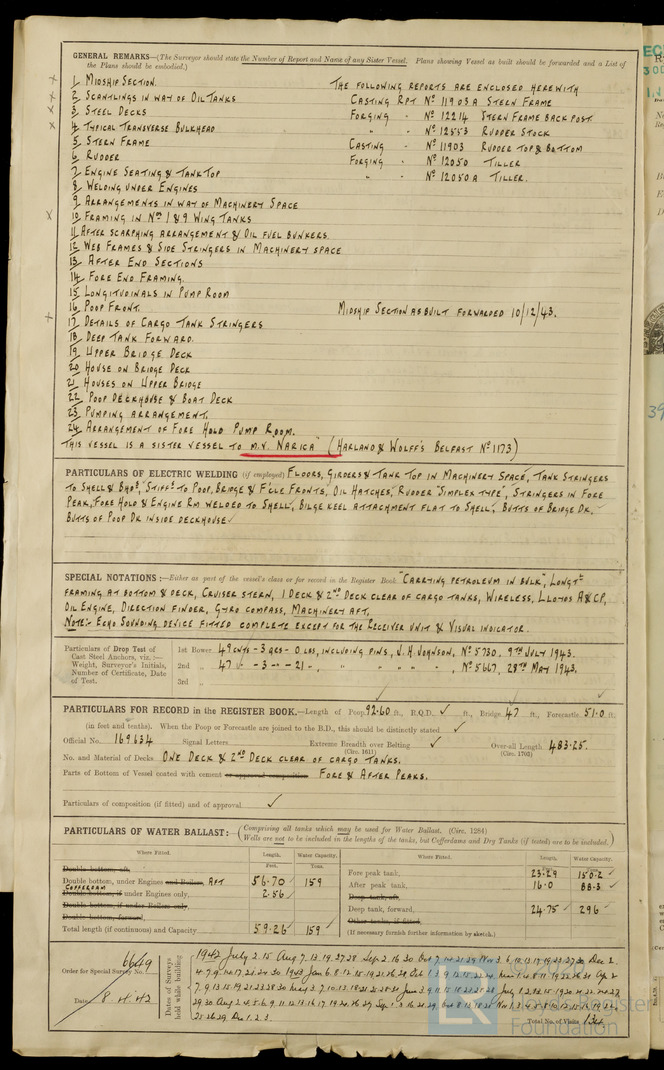 GENERAL REMARKS—(The Surveyor should state the Number of Report and Name of any Sister Vessel. Plans showing Vessel as built should be forwarded and a List of
the Plans should be embodied.)
1 MIDSHIP SECTION. THE FOLLOWING REPORTS ARE ENCLOSED HEREWITH
2 SCANTLINGS IN WAY OF OIL TANKS CASTING RPT Nº 11903A STERN FRAME
3 STEEL DECKS FORGING " Nº 12214 STERN FRAME BACK POST.
4 TYPICAL TRANSVERSE BULKHEAD " " Nº 12553 RUDDER STOCK
5 STERN FRAME CASTING " Nº 11903 RUDDER TOP & BOTTOM
6 RUDDER FORGING " Nº 12050 TILLER.
7 ENGINE SEATING & TANK TOP " " Nº 12050A TILLER.
8 WELDING UNDER ENGINES
9 ARRANGEMENTS IN WAY OF MACHINERY SPACE
10 FRAMING IN Nos 1 & 9 WING TANKS
11 AFTER SCARPHING ARRANGEMENT & OIL FUEL BUNKERS
12 WEB FRAMES & SIDE STRINGERS IN MACHINERY SPACE
13 AFTER END SECTIONS
14 FORE END FRAMING.
15 LONGITUDINALS IN PUMP ROOM
16 POOP FRONT. MIDSHIP SECTION AS BUILT FORWARDED 10/12/43.
17 DETAILS OF CARGO TANK STRINGERS
18 DEEP TANK FORWARD.
19 UPPER BRIDGE DECK
20 HOUSE ON BRIDGE DECK
21 HOUSES ON UPPER BRIDGE
22 POOP DECKHOUSE & BOAT DECK
23 PUMPING ARRANGEMENT.
24 ARRANGEMENT OF FORE HOLD PUMP ROOM.
THIS VESSEL IS A SISTER VESSEL TO M.V. "NARICA" (HARLAND & WOLFF'S BELFAST Nº 1173)
PARTICULARS OF ELECTRIC WELDING (if employed) FLOORS, GIRDERS & TANK TOP IN MACHINERY SPACE, TANK STRINGERS
TO SHELL & BHDS, STIFFS TO POOP, BRIDGE & F'CLE FRONTS, OIL HATCHES, RUDDER "SIMPLEX TYPE", STRINGERS IN FORE
PEAK, FORE HOLD & ENGINE RM WELDED TO SHELL, BILGE KEEL ATTACHMENT FLAT TO SHELL, BUTTS OF BRIDGE DK.
BUTTS OF POOP DK INSIDE DECKHOUSE
SPECIAL NOTATIONS :—Either as part of the vessel's class or for record in the Register Book. "CARRYING PETROLEUM IN BULK", LONGTL
FRAMING AT BOTTOM & DECK, CRUISER STERN, 1 DECK & 2ND DECK CLEAR OF CARGO TANKS, WIRELESS, LLOYDS A & CP,
OIL ENGINE, DIRECTION FINDER, GYRO COMPASS, MACHINERY AFT,
NOTE:- ECHO SOUNDING DEVICE FITTED COMPLETE EXCEPT FOR THE RECEIVER UNIT & VISUAL INDICATOR.
Particulars of Drop Test of 1st Bower 49 CWTS - 3 QRS - 0 LBS, INCLUDING PINS, J.H. JOHNSON, Nº 5730. 9TH JULY 1943.
Cast Steel Anchors, viz. :—
Weight, Surveyor's Initials, 2nd „ 47 " - 3 " - 21 " " " " " Nº 5667, 28TH MAY 1943.
Number of Certificate, Date
of Test. 3rd „
PARTICULARS FOR RECORD in the REGISTER BOOK.—Length of Poop 92.60 ft., R.Q.D. ft., Bridge 47 ft., Forecastle 51.0 ft.
(in feet and tenths). When the Poop or Forecastle are joined to the B.D., this should be distinctly stated
Official No. 169634 Signal Letters Extreme Breadth over Belting Over-all Length 483.25.
(Circ. 1611) (Circ. 1703)
No. and Material of Decks ONE DECK & 2ND DECK CLEAR OF CARGO TANKS.
Parts of Bottom of Vessel coated with cement or approved composition FORE & AFTER PEAKS.
Particulars of composition (if fitted) and of approval
PARTICULARS OF WATER BALLAST:— (Comprising all tanks which may be used for Water Ballast. (Circ. 1284)
Wells are not to be included in the lengths of the tanks, but Cofferdams and Dry Tanks (if tested) are to be included.)
Where Fitted. Length. Water Capacity. Where Fitted. Length. Water Capacity.
Feet. Tons.
Double bottom, aft,
Double bottom, under Engines and Boilers, AFT 56.70 159
COFFERDAM
Double bottom, if under Engines only, 2.56
Double bottom, if under Boilers only,
Double bottom, forward,
Total length (if continuous) and Capacity 59.26 159
Fore peak tank, 23.29 150.2
After peak tank, 16.0 88.3
Deep tank, aft,
Deep tank, forward, 24.75 296
Other tanks, if fitted,
(If necessary furnish further information by sketch.)
Order for Special Survey No. 6649
Date 8.4.42
Dates of Surveys
held while building
1942 July 2.15 Aug 7.13.19.27.28 Sep 2.16.30
Dec 1.2.3.
Total No. of Visits 134
Lloyd's Register
Foundation